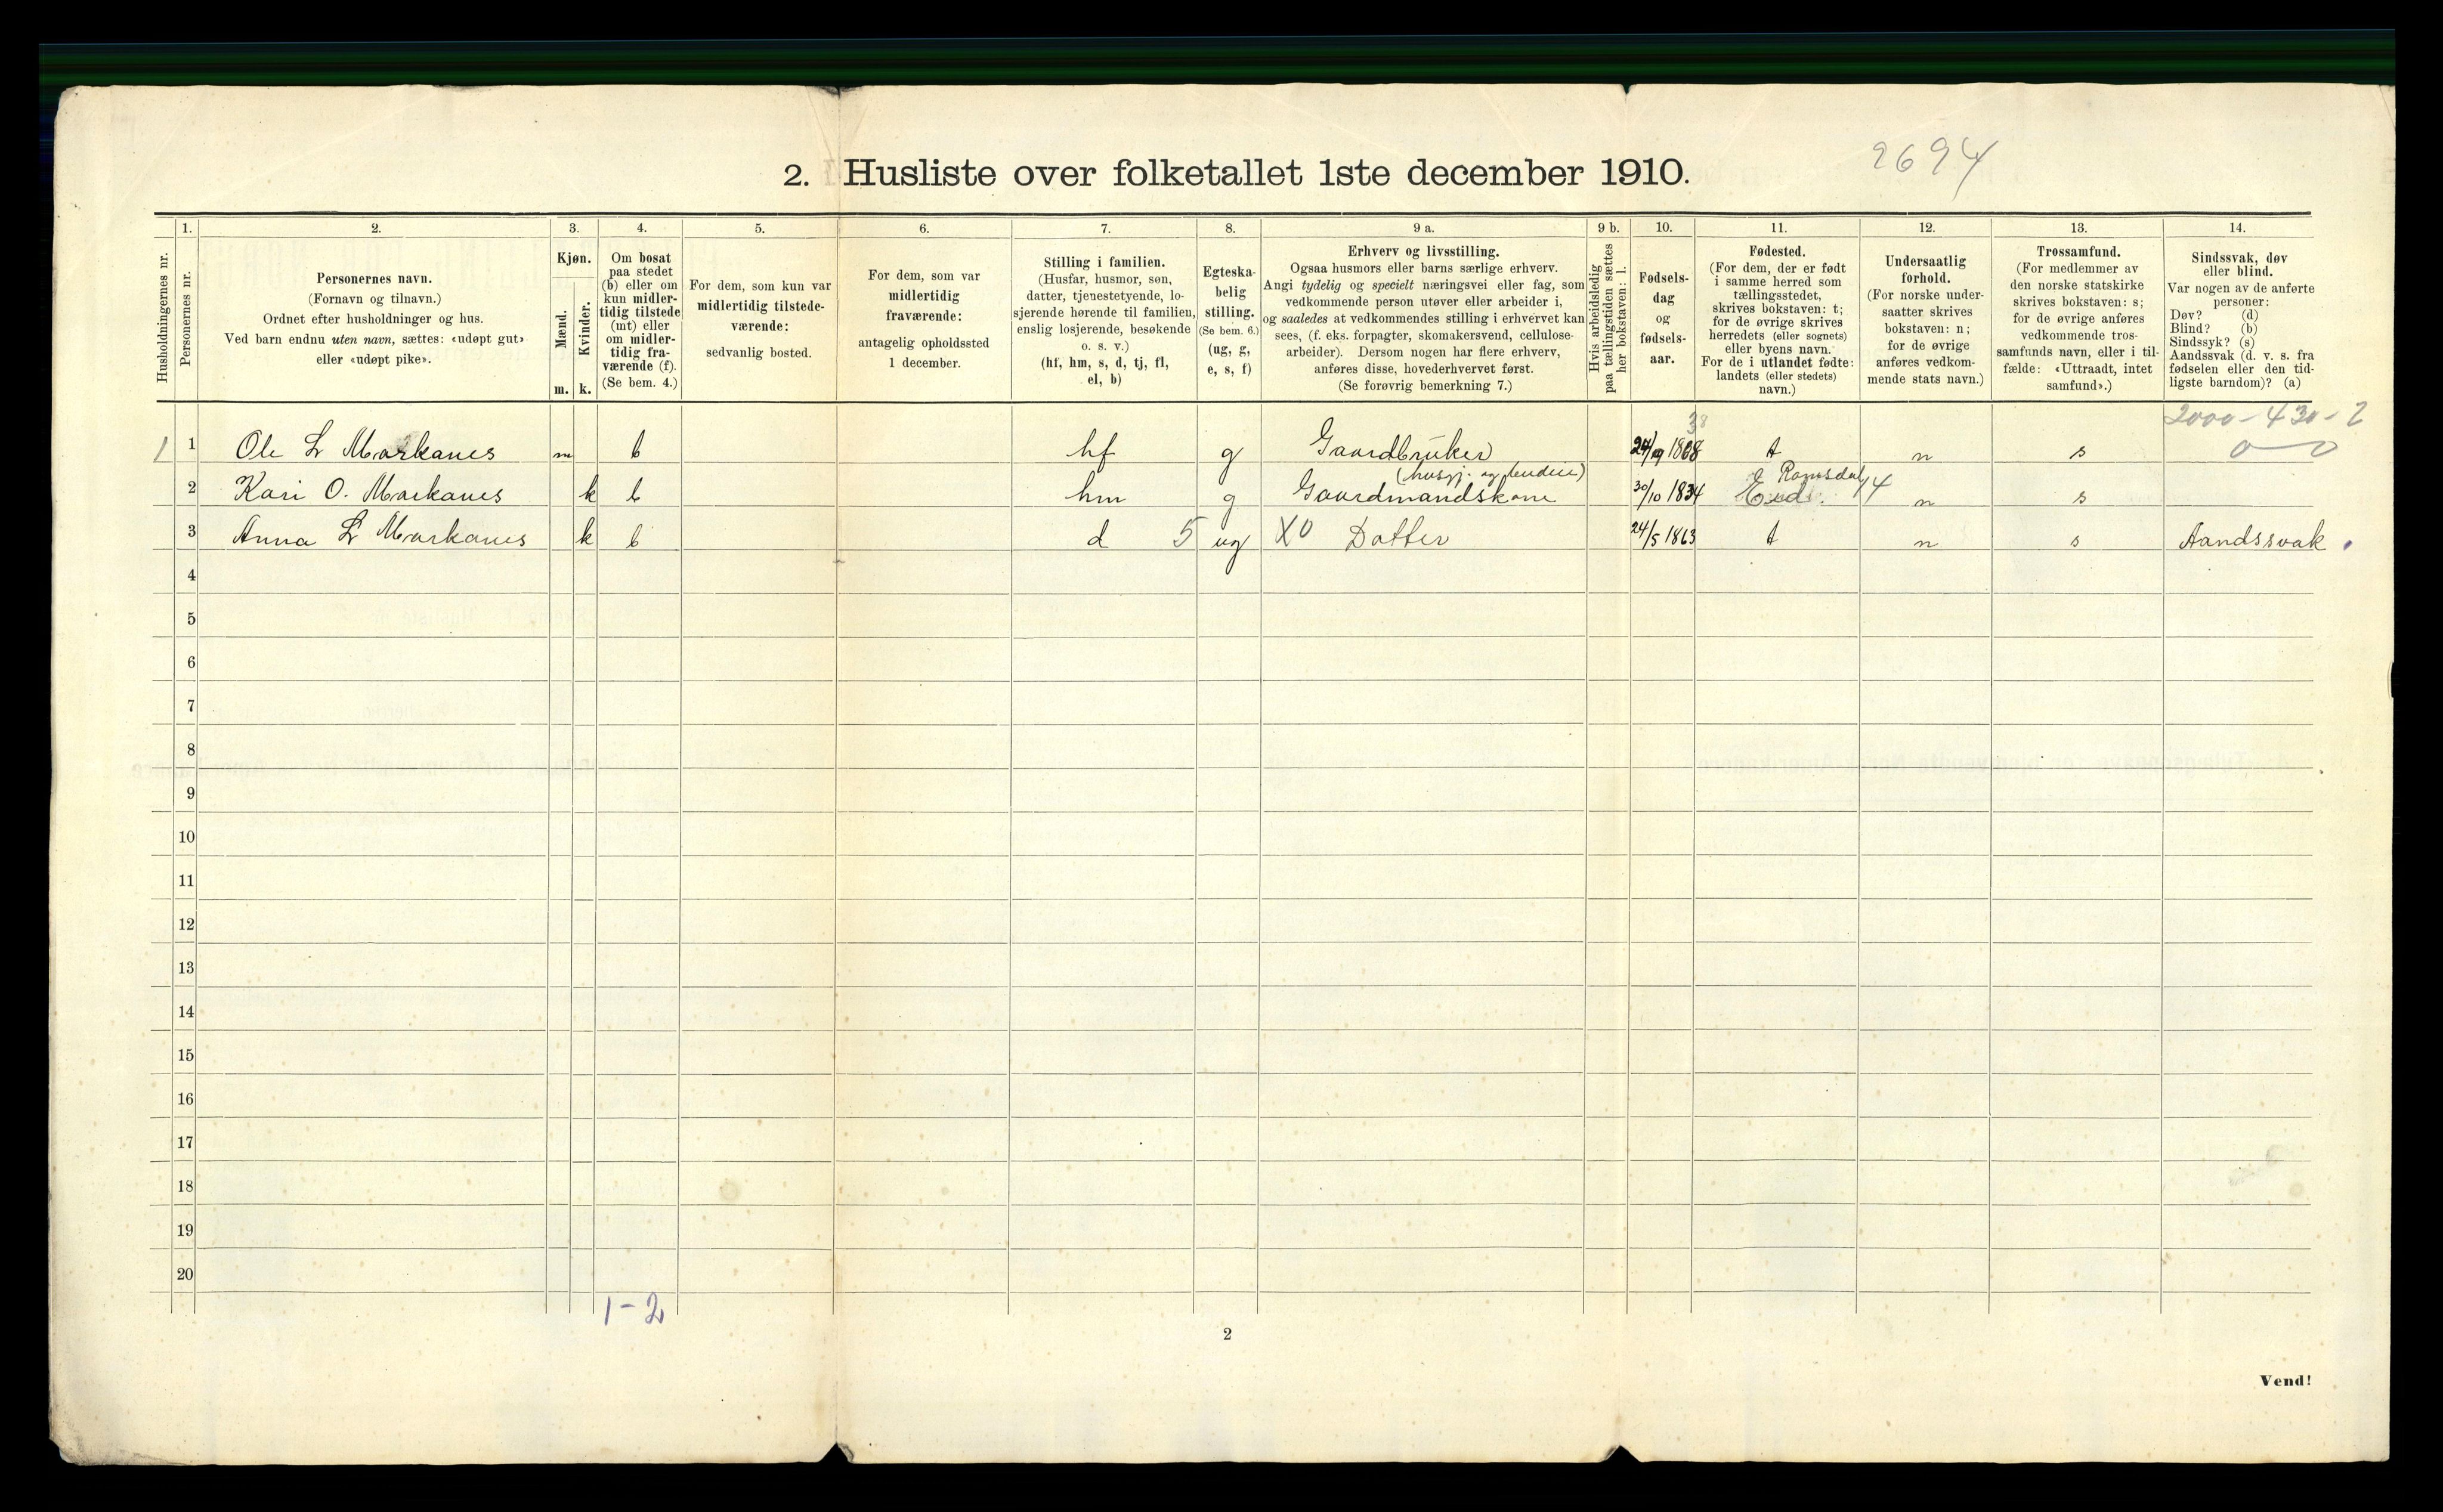 2694
2. Husliste over folketallet 1ste december 1910.
Husholdningernes nr.
1.
Personernes nr.
2.
Personernes navn.
(Fornavn og tilnavn.)
Ordnet efter husholdninger og hus.
Ved barn endnu uten navn, sættes: «udøpt gut»
eller «udøpt pike».
3.
Kjøn.
Mænd.
m.
Kvinder.
k.
4.
Om bosat
paa stedet
(b) eller om
kun midler-
tidig tilstede
(mt) eller
om midler-
tidig fra-
værende (f).
(Se bem. 4.)
5.
For dem, som kun var
midlertidig tilstede-
værende:
sedvanlig bosted.
6.
For dem, som var
midlertidig
fraværende:
antagelig opholdssted
1 december.
7.
Stilling i familien.
(Husfar, husmor, søn,
datter, tjenestetyende, lo-
sjerende hørende til familien,
enslig losjerende, besøkende
o. s. v.)
(hf, hm, s, d, tj, fl,
el, b)
8.
Egteska-
belig
stilling.
(Se bem. 6.)
(ug, g,
e, s, f)
9 a.
Erhverv og livsstilling.
Ogsaa husmors eller barns særlige erhverv.
Angi tydelig og specielt næringsvei eller fag, som
vedkommende person utøver eller arbeider i,
og saaledes at vedkommendes stilling i erhvervet kan
sees, (f. eks. forpagter, skomakersvend, cellulose-
arbeider). Dersom nogen har flere erhverv,
anføres disse, hovederhvervet først.
(Se forøvrig bemerkning 7.)
9 b.
Hvis arbeidsledig
paa tællingstiden sættes
her bokstaven: l.
10.
Fødsels-
dag
og
fødsels-
aar.
11.
Fødested.
(For dem, der er født
i samme herred som
tællingsstedet,
skrives bokstaven: t;
for de øvrige skrives
herredets (eller sognets)
eller byens navn.
For de i utlandet fødte:
landets (eller stedets)
navn.)
12.
Undersaatlig
forhold.
(For norske under-
saatter skrives
bokstaven: n;
for de øvrige
anføres vedkom-
mende stats navn.)
13.
Trossamfund.
(For medlemmer av
den norske statskirke
skrives bokstaven: s;
for de øvrige anføres
vedkommende tros-
samfunds navn, eller i til-
fælde: «Uttraadt, intet
samfund».)
14.
Sindssvak, døv
eller blind.
Var nogen av de anførte
personer:
Døv? (d)
Blind? (b)
Sindssyk? (s)
Aandssvak (d. v. s. fra
fødselen eller den tid-
ligste barndom)? (a)
38 2000-430-2
1 1 Ole L Markanes m b hf g Gaardbruker 24/9 1868 t n s
(husgj. og) Romsdal
2 Kari O. Markanes k b hm g Gaardmandskone 30/10 1834 14 n s
3 Anna L Markanes k b d 5 ug X0 Datter 24/5 1863 t n s Aandssvak
4
5
6
7
8
9
10
11
12
13
14
15
16
17
18
19
20
1-2
2
Vend!